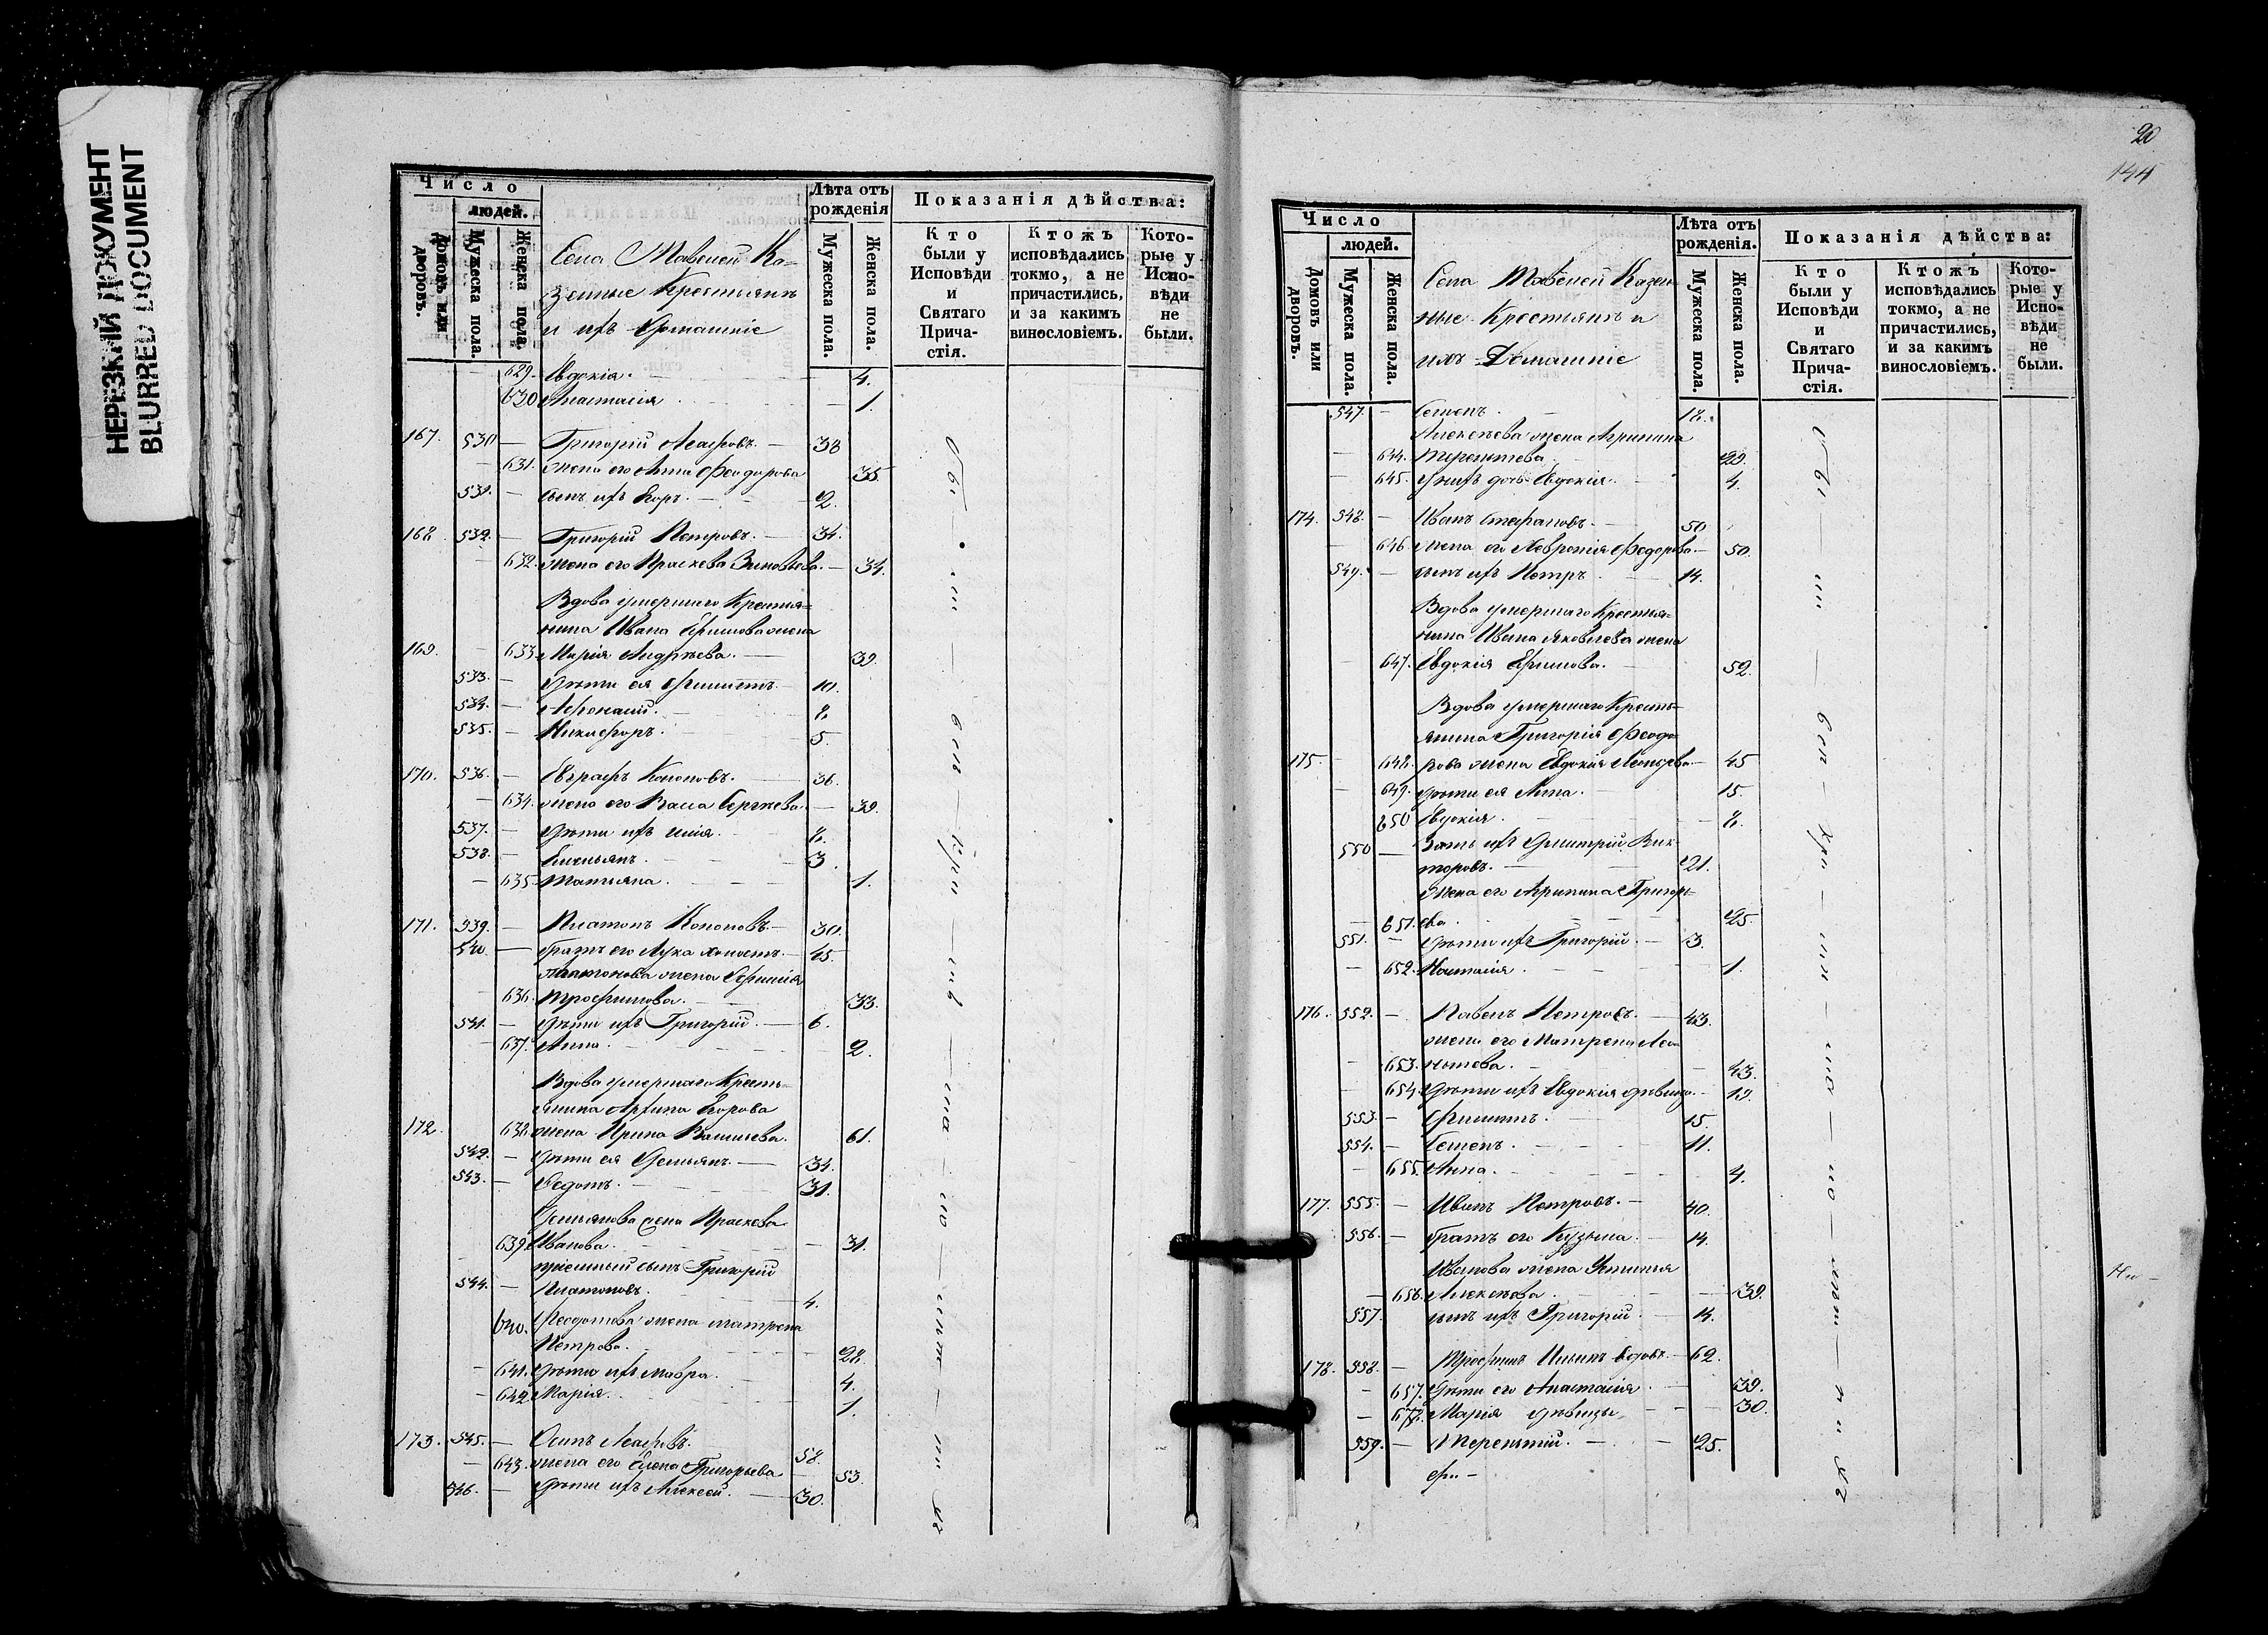 НЕРЕЗКИЙ ДОКУМЕНТ
BLURRED DOCUMENT
Число
людей.
Домовъ или дворовъ.
Мужеска пола.
Женска пола.
Села Ка-
зенные Крестьяне
и ихъ Домашніе
Лѣта отъ рожденія
Мужеска пола.
Женска пола.
Показанія дѣйства:
Кто были у Исповѣди и Святаго Прича-стія.
Ктожъ исповѣдались токмо, а не причастились, и за какимъ винословіемъ.
Кото-рые у Испо-вѣди не были.
629. Евдокія. 4.
630 Анастасія 1.
167. 530 Григорій 38
631. жена его Анна Феодорова 35.
531. сынъ ихъ Егоръ. 2.
168. 532. Григорій Петровъ. 34.
632. жена его Праскева Зиновьева. 34.
Вдова умершаго Крестья=
нина Ивана жена
169. 633. Марія Андрѣева. 39.
533. дѣти ея Филиппъ 10.
534. Афонасій. 8.
535. Никифоръ. 5.
170. 536. Евграфъ Кононовъ. 36.
634. жена его Васса Сергѣева. 39.
537. дѣти ихъ Илія. 8.
538. Емельянъ. 3.
635. Татьяна. 1.
171. 539. Платонъ Кононовъ. 30.
540. братъ его Лука холостъ. 45.
Платонова жена
636. Трофимова. 33.
541. дѣти ихъ Григорій. 6.
637. Анна. 2.
Вдова умершаго Кресть-
янина Архипа Егорова
172. 638. жена Ирина Васильева. 61.
542. дѣти ея Демьянъ. 34.
543. Федотъ. 31.
Демьянова жена Праскева
639. Иванова. 31.
приемный сынъ Григорій
544. Платоновъ. 4.
640. Феодотова жена Матрена
Петрова. 28.
641. дѣти ихъ Мавра. 4.
642. Марія. 1.
173. 545. Осипъ 58.
643. жена его Елена Григорьева 53.
546. дѣти ихъ Алексей. 30.
20
144
Число
людей.
Домовъ или дворовъ.
Мужеска пола.
Женска пола.
Села Казен-
ные Крестьяне и
ихъ Домашніе
Лѣта отъ рожденія.
Мужеска пола.
Женска пола.
Показанія дѣйства:
Кто были у Исповѣди и Святаго Прича-стія.
Ктожъ исповѣдались токмо, а не причастились, и за какимъ винословіемъ.
Кото-рые у Испо-вѣди не были.
547. Семенъ. 18.
Алексѣева жена Агрипина
644. Терентьева. 29.
645. у нихъ дочь Евдокія. 4.
174. 548. Иванъ Стефановъ. 50.
646. жена его Феодорова 50.
549. сынъ ихъ Петръ. 14.
Вдова умершаго Крестья-
нина Ивана Яковлева жена
647. Евдокія Ефимова. 52.
Вдова умершаго Кресть-
янина Григорія Феодо-
175. 648. рова жена Евдокія 45
649. дѣти ея Анна. 15.
650 Евдокія. 8.
550 Зять ихъ Димитрій Вик-
торовъ. 21.
Жена его Агрипина Григорь-
651. ева. 25.
551. дѣти ихъ Григорій. 3.
652. Настасія. 1.
176. 552. Павелъ Петровъ. 43.
жена его Матрена Лео-
653. нтьева. 43.
654. дѣти ихъ Евдокія дѣвица. 19.
553. Филиппъ. 15.
554. Семенъ. 11.
655. Анна. 4.
177. 555. Иванъ Петровъ. 40.
556. братъ его Кузьма. 14.
Иванова жена Устинья
656. Алексѣева. 39.
557. сынъ ихъ Григорій. 14.
178. 558. Трофимъ Ильинъ вдовъ. 62.
657. дѣти его Анастасія 39.
658. Марія дѣвицы 30.
559. Терентій. 25.